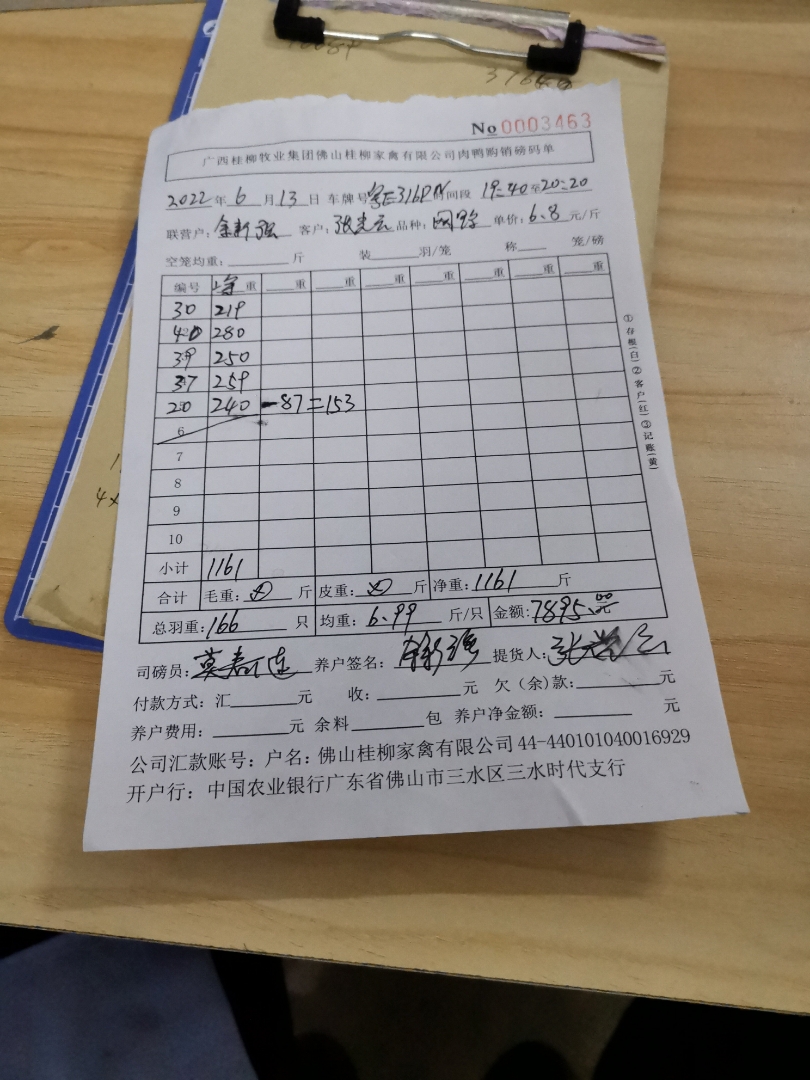 No 0003463
广西桂柳牧业集团佛山桂柳家禽有限公司肉鸭购销磅码单
2022年6月13日 车牌号粤E316 时间段 19:40至20:20
联营户: 余新强 客户: 张 品种: 单价: 6.8元/斤
空笼均重:____斤 装____羽/笼 称____笼/磅
编号 重 重 重 重 重 重 重 重
30 219
40 280
39 250
37 259
20 240 -87=153
6
7
8
9
10
小计 1161
合计 毛重: 斤 皮重: 斤 净重: 1161 斤
总羽重: 166 只 均重: 6.99 斤/只 金额: 7895.00元
司磅员: 莫 连 养户签名: 余新强 提货人: 张
付款方式: 汇____元 收:____元 欠(余)款:____元
养户费用:____元 余料____包 养户净金额:____元
公司汇款账号: 户名: 佛山桂柳家禽有限公司 44-440101040016929
开户行: 中国农业银行广东省佛山市三水区三水时代支行
①存根(白)②客户(红)③记账(黄)